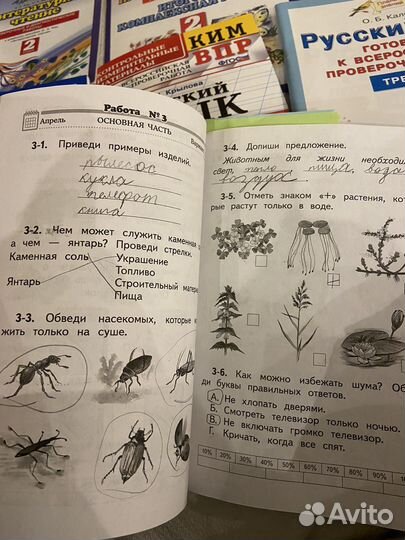 Литературное
чтение
2
2
КОНТРОЛЬНЫЕ
ИЗМЕРИТЕЛЬНЫЕ
МАТЕРИАЛЫ
КИМ
ВПР
ВСЕРОССИЙСКАЯ
ПРОВЕРОЧНАЯ РАБОТА
ФГОС
Крылова
О. Б. Кал
Русский
ГОТО
К ВСЕРО
ПРОВЕРОЧН
ТРЕ
Работа № 3
Апрель
ОСНОВНАЯ ЧАСТЬ
Вариа
3-1. Приведи примеры изделий.
пылесос
кукла
телефон
книга
3-2. Чем может служить каменная
а чем — янтарь? Проведи стрелки.
Каменная соль
Украшение
Топливо
Янтарь
Строительный матери
Пища
3-3. Обведи насекомых, которые
жить только на суше.
3-4. Допиши предложение.
Животным для жизни необходи
свет, тепло пища, вода
воздух
3-5. Отметь знаком «+» растения, кот
рые растут только в воде.
3-6. Как можно избежать шума? Об
ди буквы правильных ответов.
А. Не хлопать дверями.
Б. Смотреть телевизор только ночью.
В. Не включать громко телевизор.
Г. Кричать, когда все спят.
10% 20% 30% 40% 50% 60% 70% 80% 90% 100%
Avito